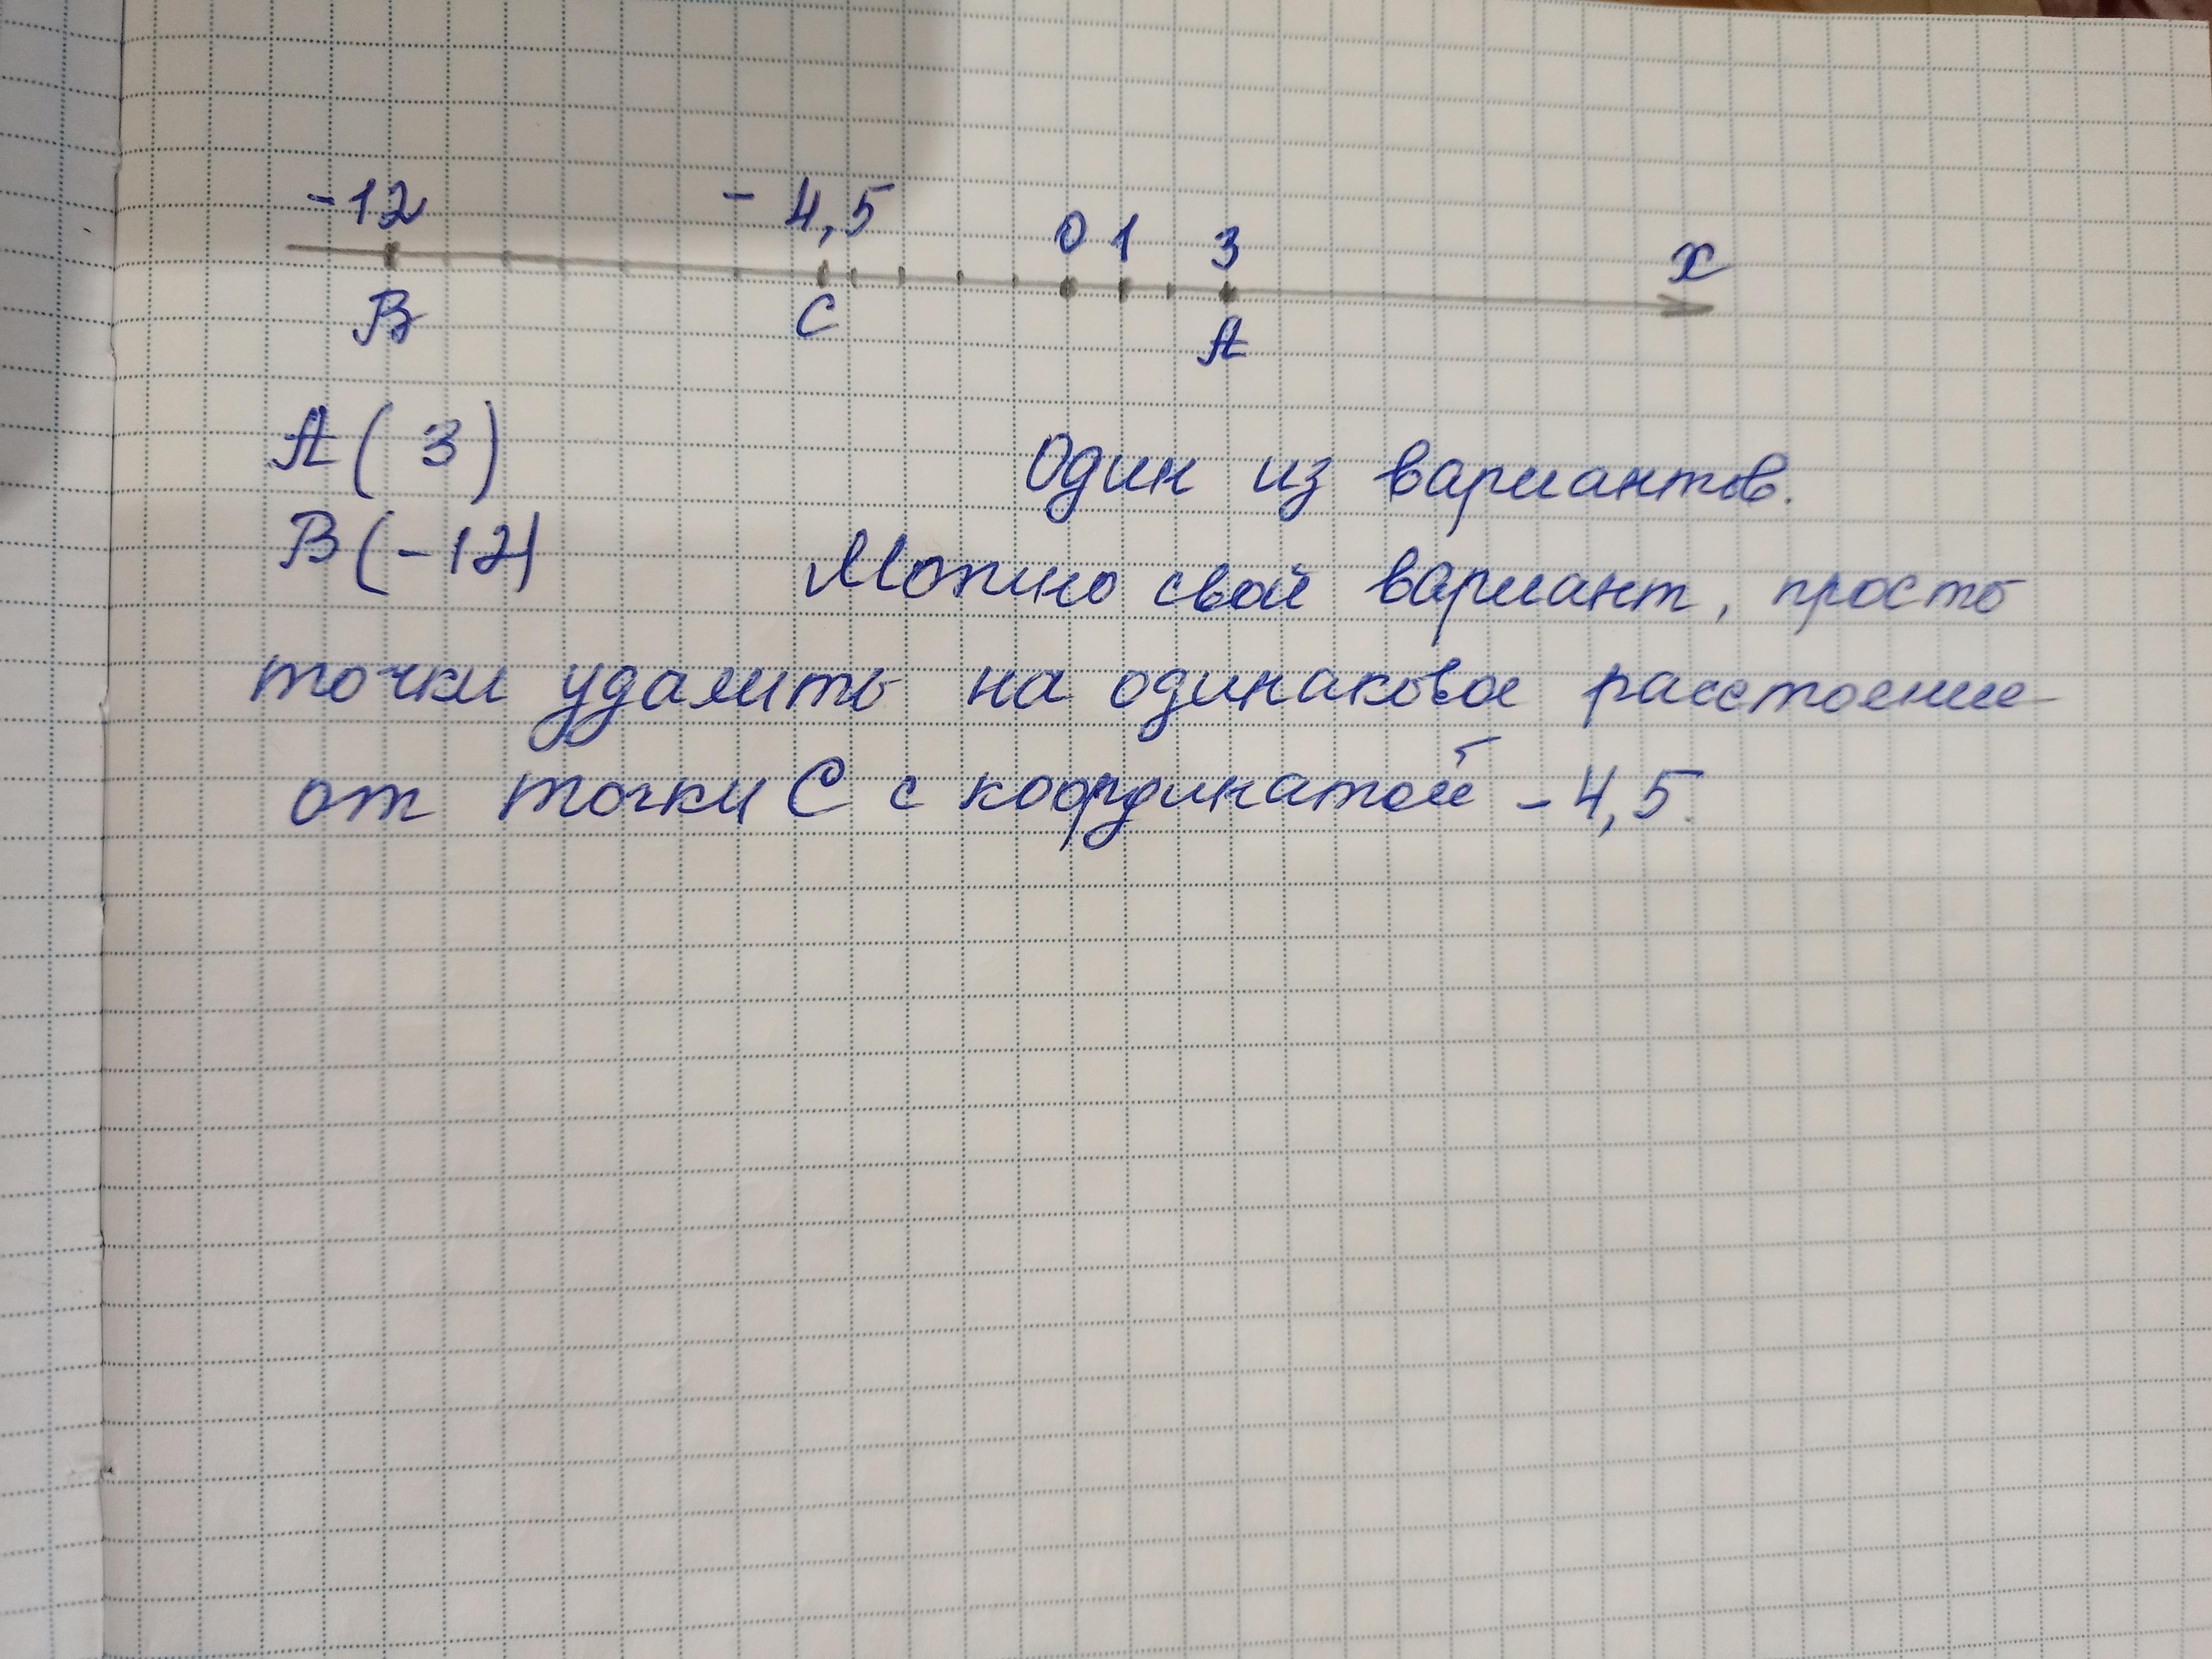 -12 - 4,5 0 1 3 x
B C A
A ( 3 )
Один из вариантов.
B ( -12)
Можно свой вариант, просто
точки удалить на одинаковое расстояние
от точки C с координатой - 4,5.